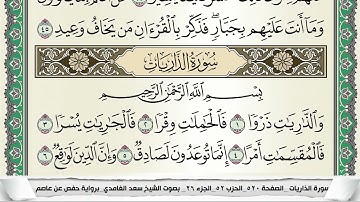 وَمَآ أَنتَ عَلَيْهِم بِجَبَّارٍ ۖ فَذَكِّرْ بِٱلْقُرْءَانِ مَن يَخَافُ وَعِيدِ ٤٥
سُورَةُ الذَّارِيَاتِ
بِسْمِ ٱللَّهِ ٱلرَّحْمَٰنِ ٱلرَّحِيمِ
وَٱلذَّٰرِيَٰتِ ذَرْوًا ١ فَٱلْحَٰمِلَٰتِ وِقْرًا ٢ فَٱلْجَٰرِيَٰتِ يُسْرًا ٣
فَٱلْمُقَسِّمَٰتِ أَمْرًا ٤ إِنَّمَا تُوعَدُونَ لَصَادِقٌ ٥ وَإِنَّ ٱلدِّينَ لَوَٰقِعٌ ٦
سورة الذاريات _الصفحة ٥٢٠ _الحزب ٥٢ _الجزء ٢٦ _ بصوت الشيخ سعد الغامدي برواية حفص عن عاصم